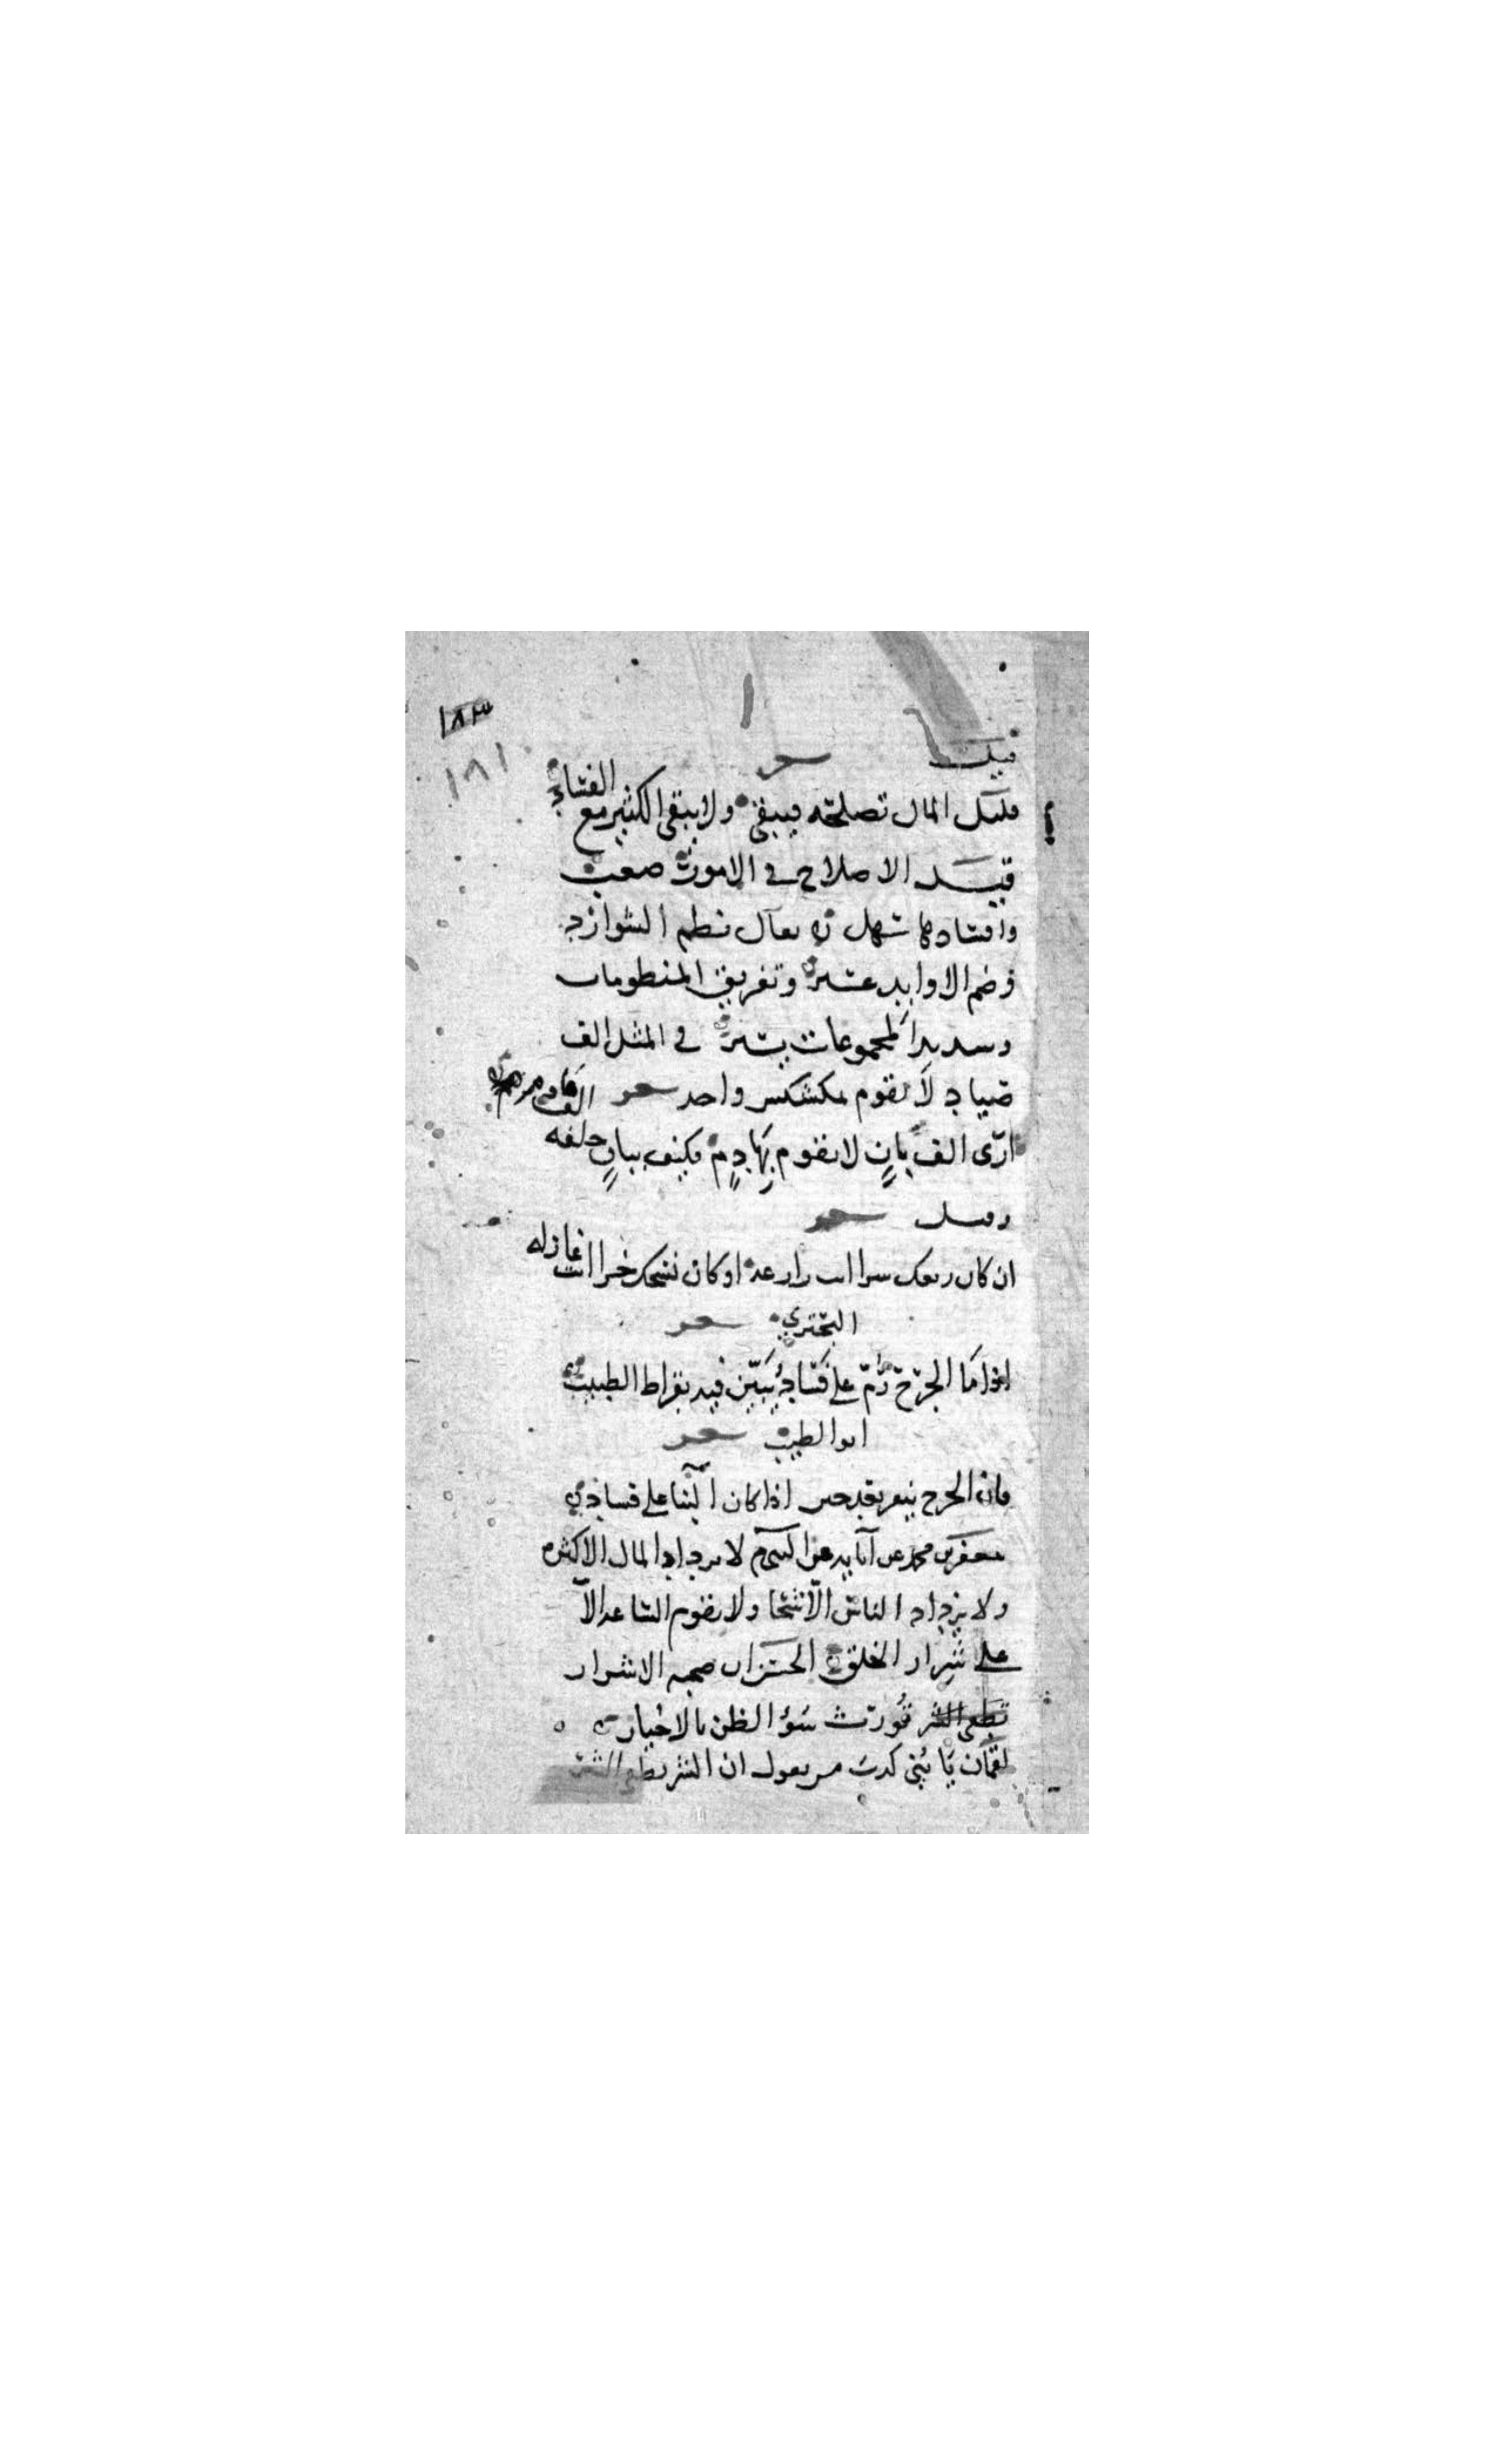 ١٨٣
١٨١
قيل شعر
قليل المال تصلحه فيبقى ولا يبقى الكثير مع الفساد
قيل الاصلاح في الامور صعب
وافسادها سهل يقال نظم الشوارد
وضم الاوابد عسر وتفريق المنظومات
وتبديد المجموعات يسر في المثل الف
صياد لا تقوم واحد شعر
ارى الف بان لا تقوم بهادم فكيف ببان خلفه الف هادم
وقيل شعر
ان كان او كان نسجك خزا انت غازله
البحتري شعر
اذا ما الجرح رم على فساد تبين فيه بقراط الطبيب
ابو الطيب شعر
فان الجرح ينفر بعد حين اذا كان البنا على فساد
جعفر بن محمد عن آبايه لا يزداد المال الا كثرة
ولا يزداد الناس الا شحا ولا تقوم الساعة الا
على شرار الخلق الحسن ان صحبة الاشرار
تورث سوء الظن بالاخيار
لقمان يا بني كذب من يقول ان الشر يطفئ الشر